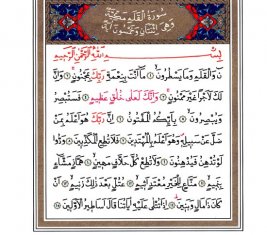 سورة القلم مكية
وهي اثنتان وخمسون آية
بسم الله الرحمن الرحيم
ن والقلم وما يسطرون ما أنت بنعمة ربك بمجنون وإن
لك لأجرا غير ممنون وإنك لعلى خلق عظيم فستبصر
ويبصرون بأييكم المفتون إن ربك هو أعلم بمن
ضل عن سبيله وهو أعلم بالمهتدين فلا تطع المكذبين ودوا
لو تدهن فيدهنون ولا تطع كل حلاف مهين هماز مشاء
بنميم مناع للخير معتد أثيم عتل بعد ذلك زنيم أن
كان ذا مال وبنين إذا تتلى عليه آياتنا قال أساطير الأولين